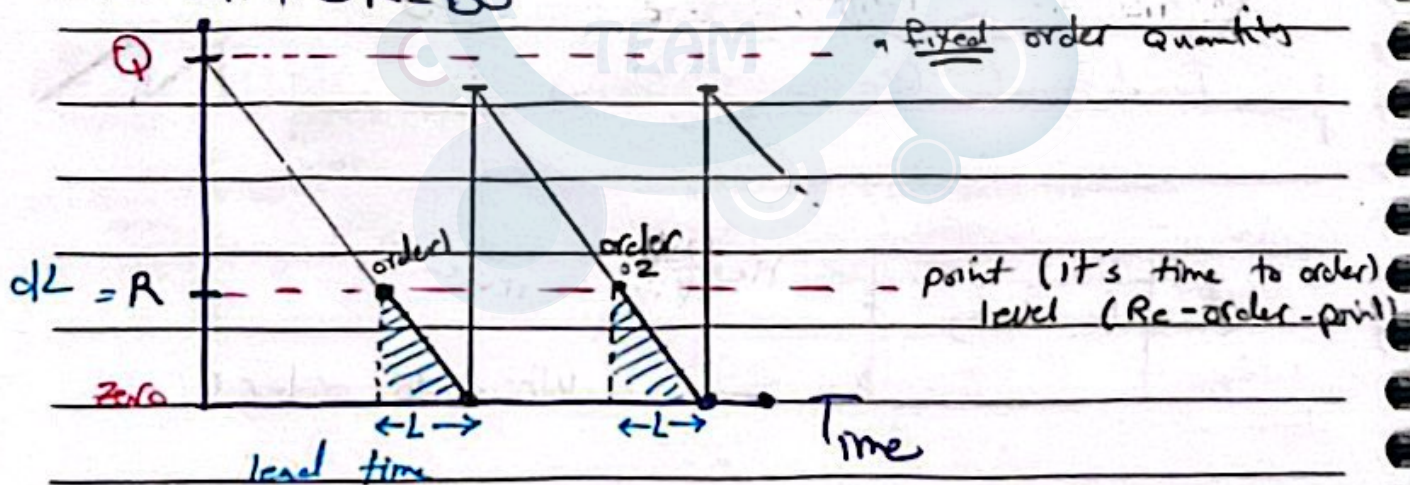 TEAM
Q
• fixed order Quantity
order1
order 2
dL = R
point (it's time to order)
level (Re-order-point)
zero
←L→
←L→
Time
lead time